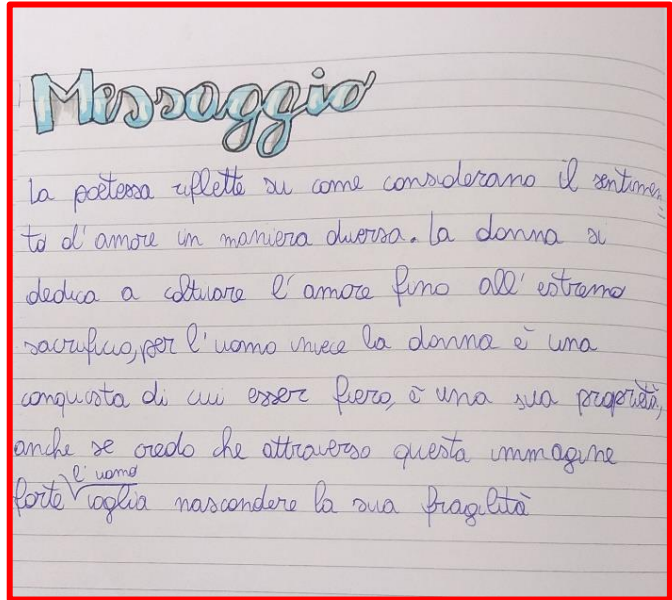 Messaggio
La poetessa riflette su come considerano il sentimen-
to d'amore in maniera diversa. La donna si
dedica a coltivare l'amore fino all'estremo
sacrificio, per l'uomo invece la donna è una
conquista di cui esser fiero, è una sua proprietà,
anche se credo che attraverso questa immagine
forte l'uomo voglia nascondere la sua fragilità